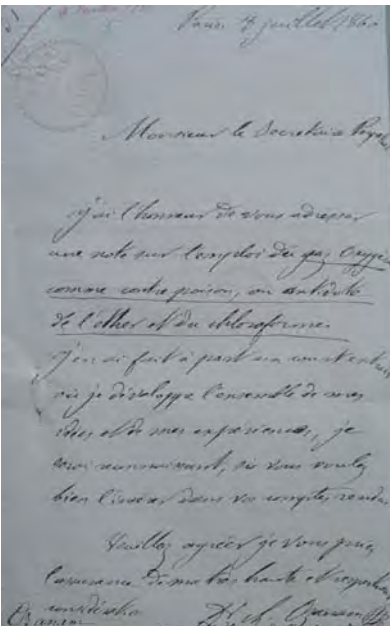 Paris 7 juillet 1860
Monsieur le Secretaire Perpé
j'ai l'honneur de vous adresser
une note sur l'emploi du gaz oxygè
comme contre poison, ou antidote
de l'éther et du chloroforme.
J'en ai fait à part un court extrait
où je développe l'ensemble de mes
idées et de mes expériences, je
serai reconnaissant, si vous voulez
bien l'insérer dans vos comptes rendus
Veuillez agréer je vous prie,
l'assurance de ma très haute et respectueu
considération
Ozanam Dr Ch. Ozanam